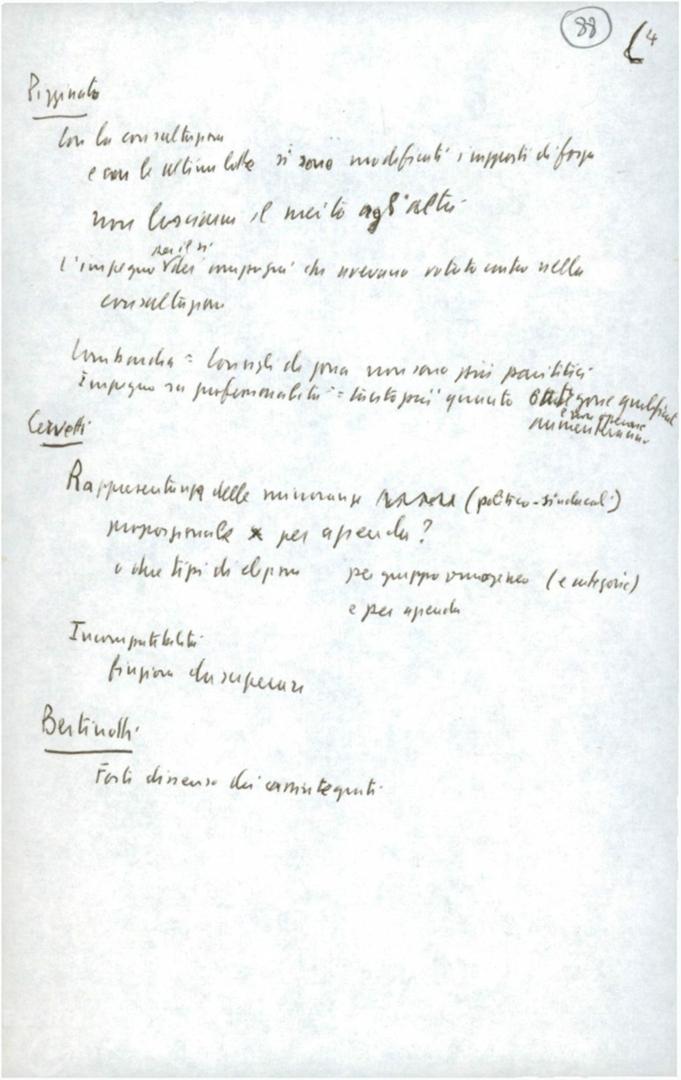 88
4
Pizzinato
Con la consultazione
e con le ultime lotte si sono modificati i rapporti di forza
non lasciamo il merito agli altri
per il sì
l'impegno dei compagni che avevano votato contro nella
consultazione
Lombardia = Consigli di zona non sono più paritetici
Impegno su professionalità = tanto più quanto categorie qualificate
e non operaie
aumenteranno
Cervetti
Rappresentanza delle minoranze (politico-sindacali)
proporzionale per azienda?
o due tipi di elezione per gruppo omogeneo (e categorie)
e per azienda
Incompatibilità
finzione da superare
Bertinotti
Forti dissenso dei cassintegrati